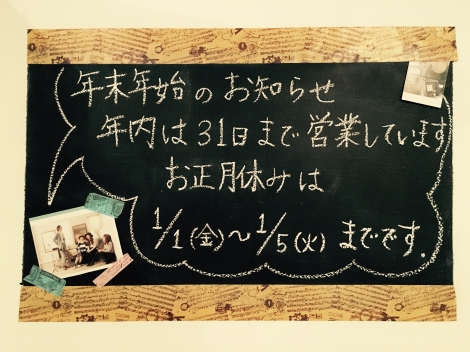 年末年始のお知らせ
年内は31日まで営業しています
お正月休みは
1/1(金)〜1/5(火)までです.